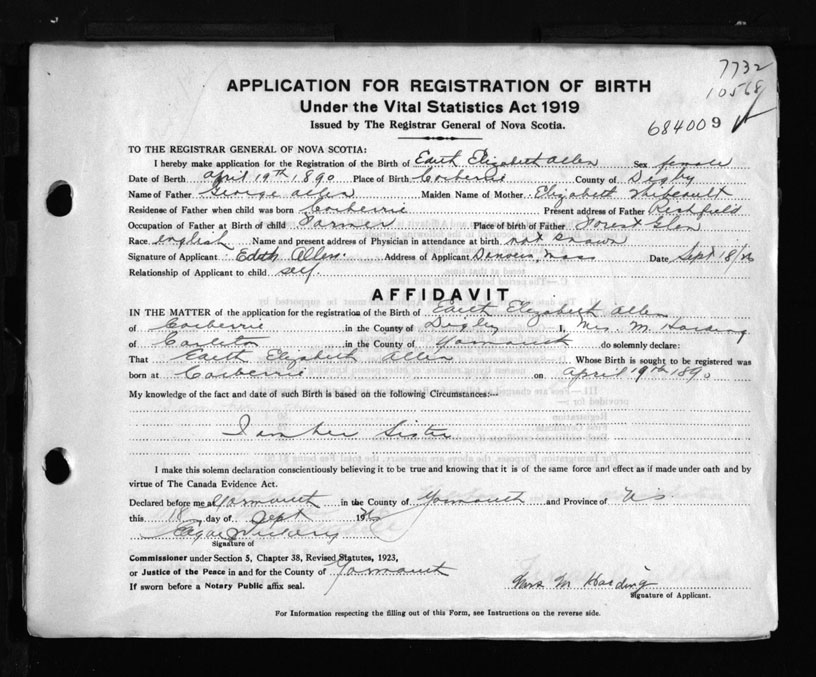 7732
10568
684009
APPLICATION FOR REGISTRATION OF BIRTH
Under the Vital Statistics Act 1919
Issued by The Registrar General of Nova Scotia.
TO THE REGISTRAR GENERAL OF NOVA SCOTIA:
I hereby make application for the Registration of the Birth of Edith Elizabeth Allen Sex female
Date of Birth April 19th 1890 Place of Birth Corberrie County of Digby
Name of Father George Allen Maiden Name of Mother Elizabeth Thibeault
Residence of Father when child was born Corberrie Present address of Father Richfield
Occupation of Father at Birth of child Farmer Place of birth of Father Forest Glen
Race English Name and present address of Physician in attendance at birth not known
Signature of Applicant Edith Allen. Address of Applicant Danvers, Mass Date Sept 18/26
Relationship of Applicant to child self
AFFIDAVIT
IN THE MATTER of the application for the registration of the Birth of Edith Elizabeth Allen
of Corberrie in the County of Digby I, Mrs. M. Harding
of Carleton in the County of Yarmouth do solemnly declare:
That Edith Elizabeth Allen Whose Birth is sought to be registered was
born at Corberrie on April 19th 1890
My knowledge of the fact and date of such Birth is based on the following Circumstances:—
I am her Sister
I make this solemn declaration conscientiously believing it to be true and knowing that it is of the same force and effect as if made under oath and by
virtue of The Canada Evidence Act.
Declared before me at Yarmouth in the County of Yarmouth and Province of NS
this 18 day of Sept 1926
Signature of
Commissioner under Section 5, Chapter 38, Revised Statutes, 1923,
or Justice of the Peace in and for the County of Yarmouth
If sworn before a Notary Public affix seal.
Mrs M Harding
Signature of Applicant.
For Information respecting the filling out of this Form, see Instructions on the reverse side.